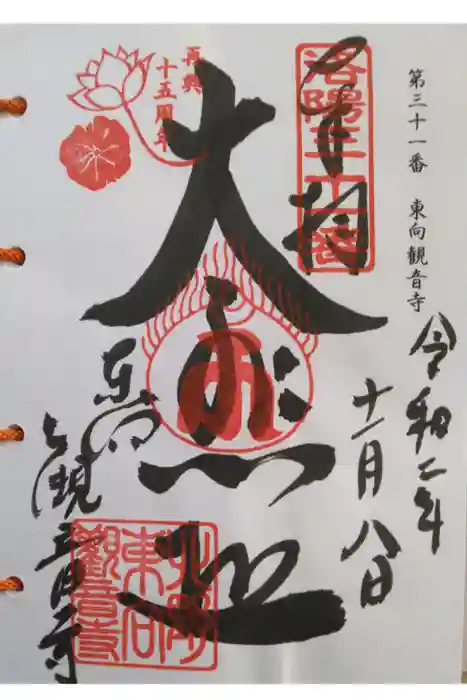 第三十一番　東向観音寺
令和二年
十一月八日
奉拝
洛陽三十一番
大悲殿
再興
十五周年
東向
観音寺
北野
東向
觀音寺